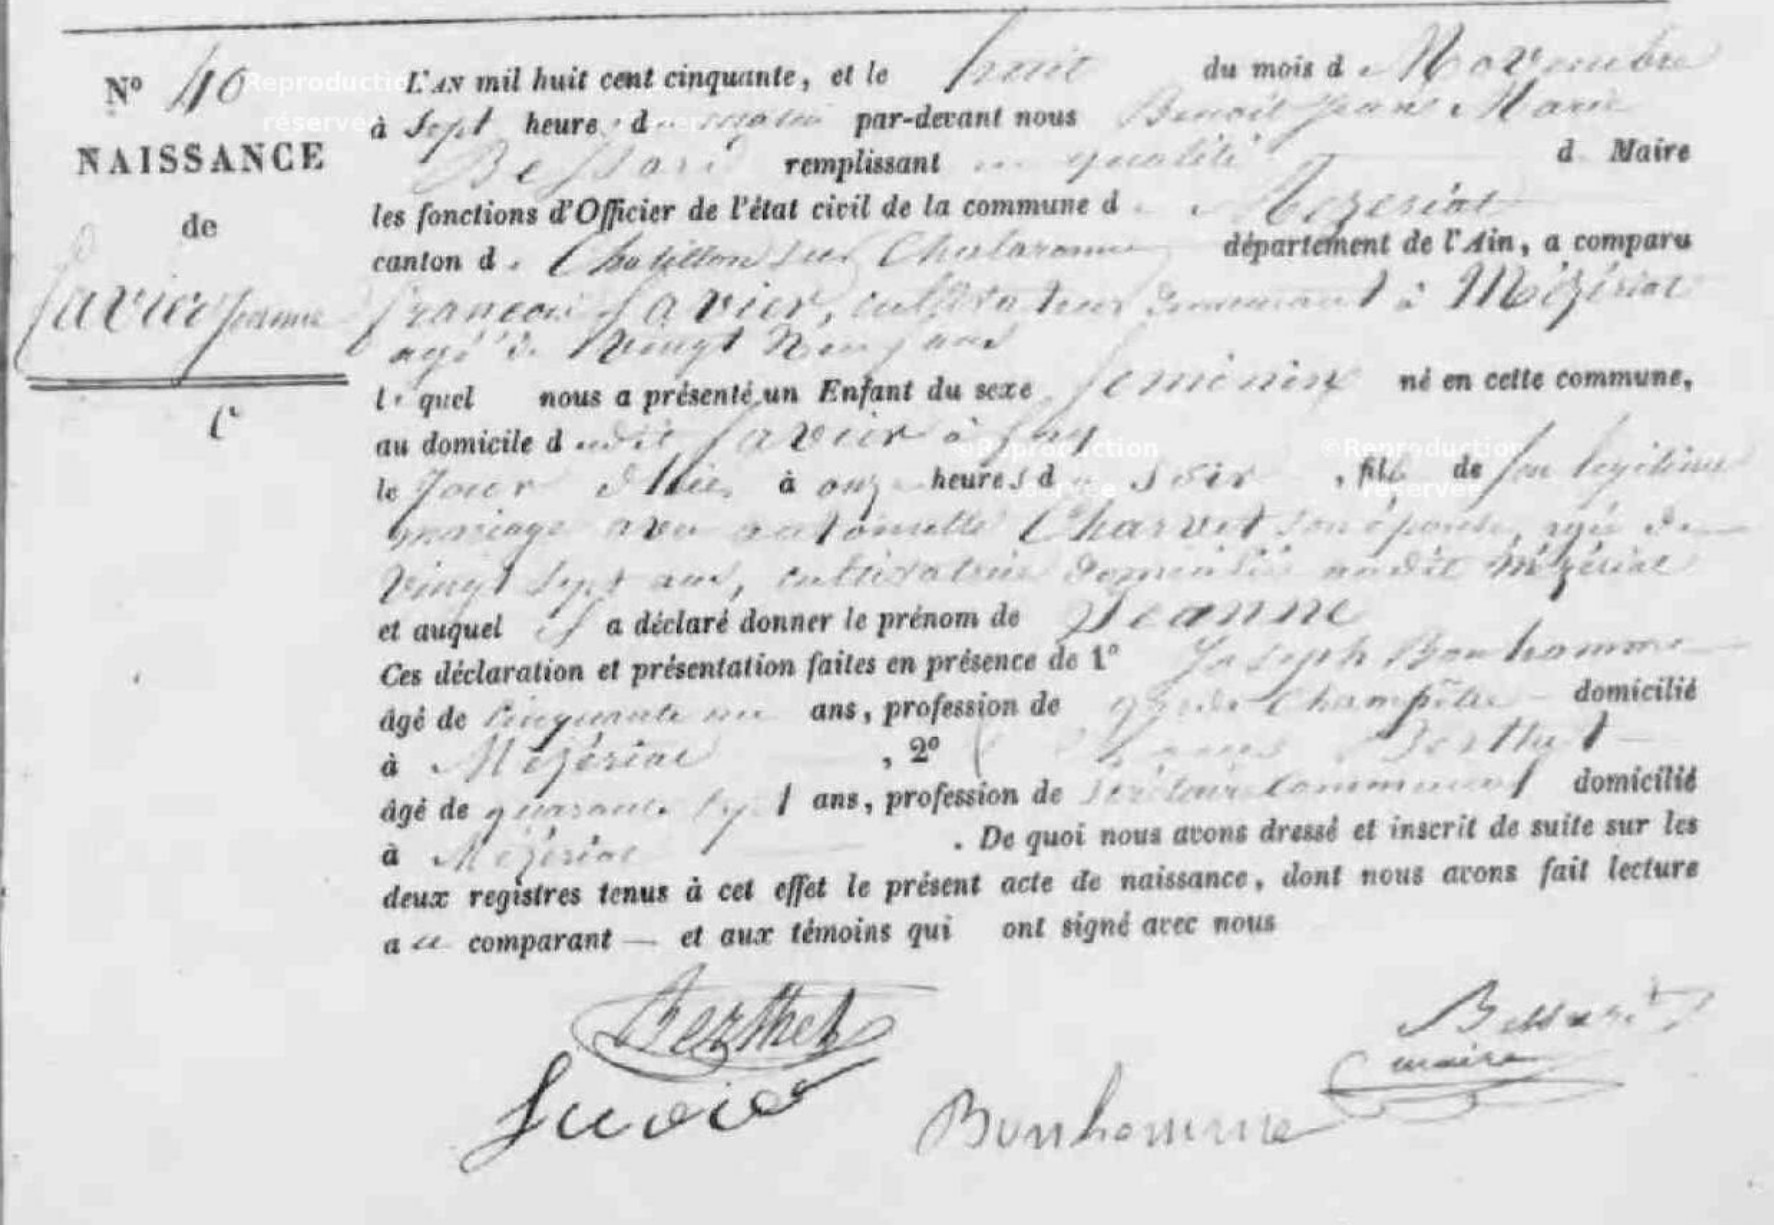 N° 40
NAISSANCE
de
Savier Jeanne
L'AN mil huit cent cinquante, et le huit du mois de Novembre
à Sept heures du matin par-devant nous Benoît Jeane Marie
Bessard remplissant en qualité d Maire
les fonctions d'Officier de l'état civil de la commune de Mézériat
canton de Chatillon sur Chalaronne département de l'Ain, a comparu
francois Savier, cultivateur demeurant à Mézériat
agé de Vingt Neuf ans
lequel nous a présenté un Enfant du sexe feminin né en cette commune,
au domicile dudit Savier à
le Jour d'hier à onze heures du soir, fille de son legitime
mariage avec antoinette Charvet son épouse, agée de
Vingt Sept ans, cultivatrice domiciliée audit Mézériat
et auquel il a déclaré donner le prénom de Jeanne
Ces déclaration et présentation faites en présence de 1° Joseph Bonhomme
âgé de Cinquante un ans, profession de garde Champêtre domicilié
à Mézériat, 2° Berthet
âgé de quarante sept ans, profession de Secrétaire domicilié
à Mézériat. De quoi nous avons dressé et inscrit de suite sur les
deux registres tenus à cet effet le présent acte de naissance, dont nous avons fait lecture
au comparant — et aux témoins qui ont signé avec nous
Berthet
Savier
Bonhomme
Bessard
maire
©Reproduction
réservée